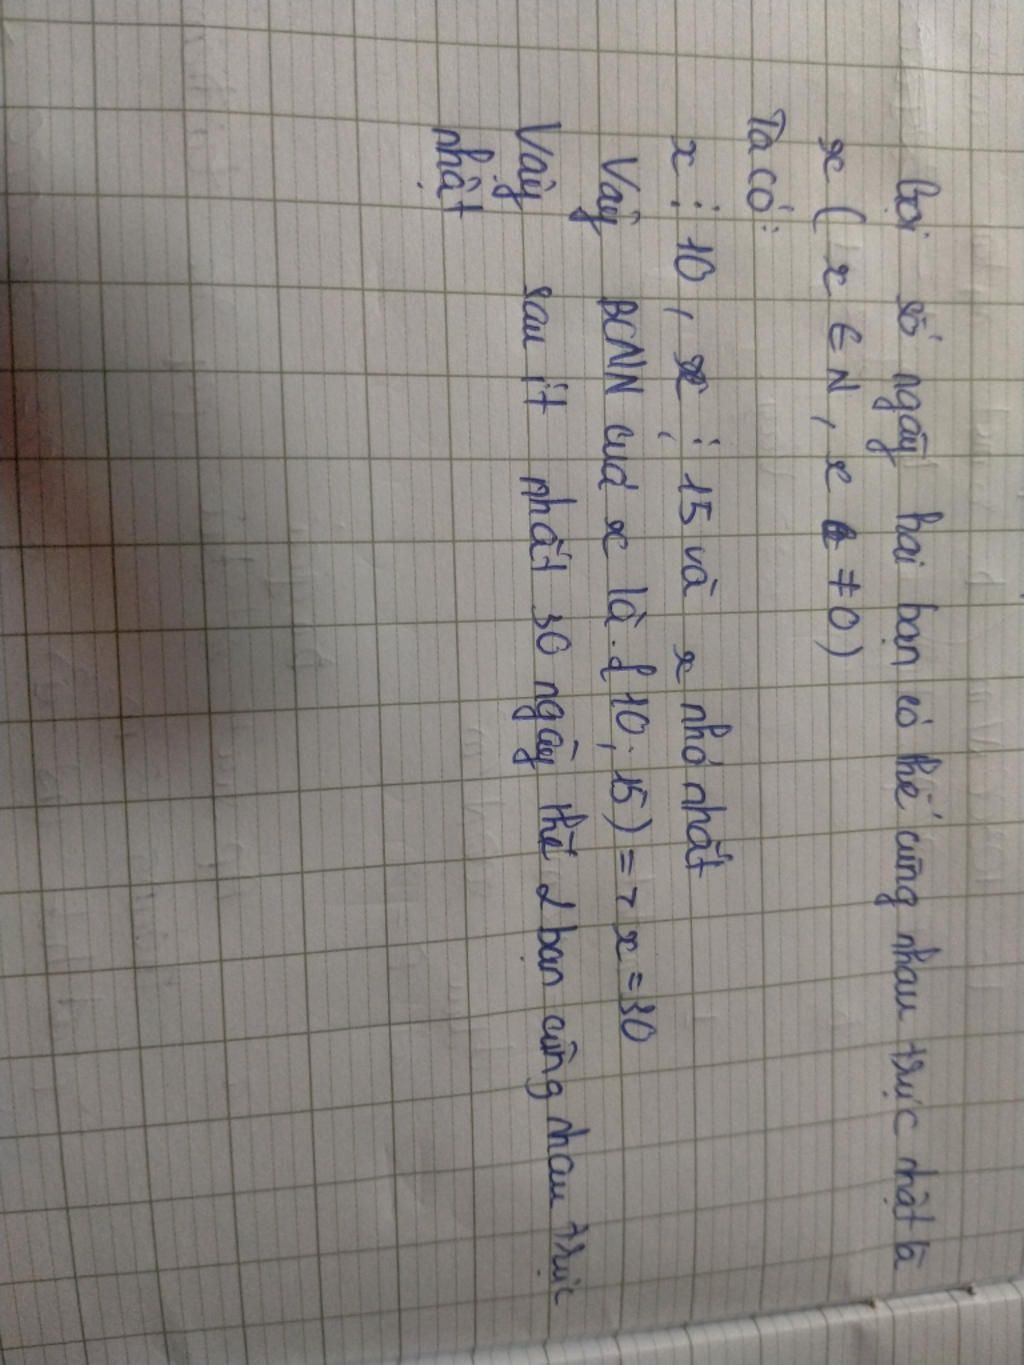 Gọi số ngày hai bạn có thể cùng nhau trực nhật là
x ( x ∈ N, x ≠ 0)
Ta có:
x ⋮ 10, x ⋮ 15 và x nhỏ nhất
Vậy BCNN của x là. { 10, 15) => x = 30
Vậy sau ít nhất 30 ngày thì 2 bạn cùng nhau trực
nhật